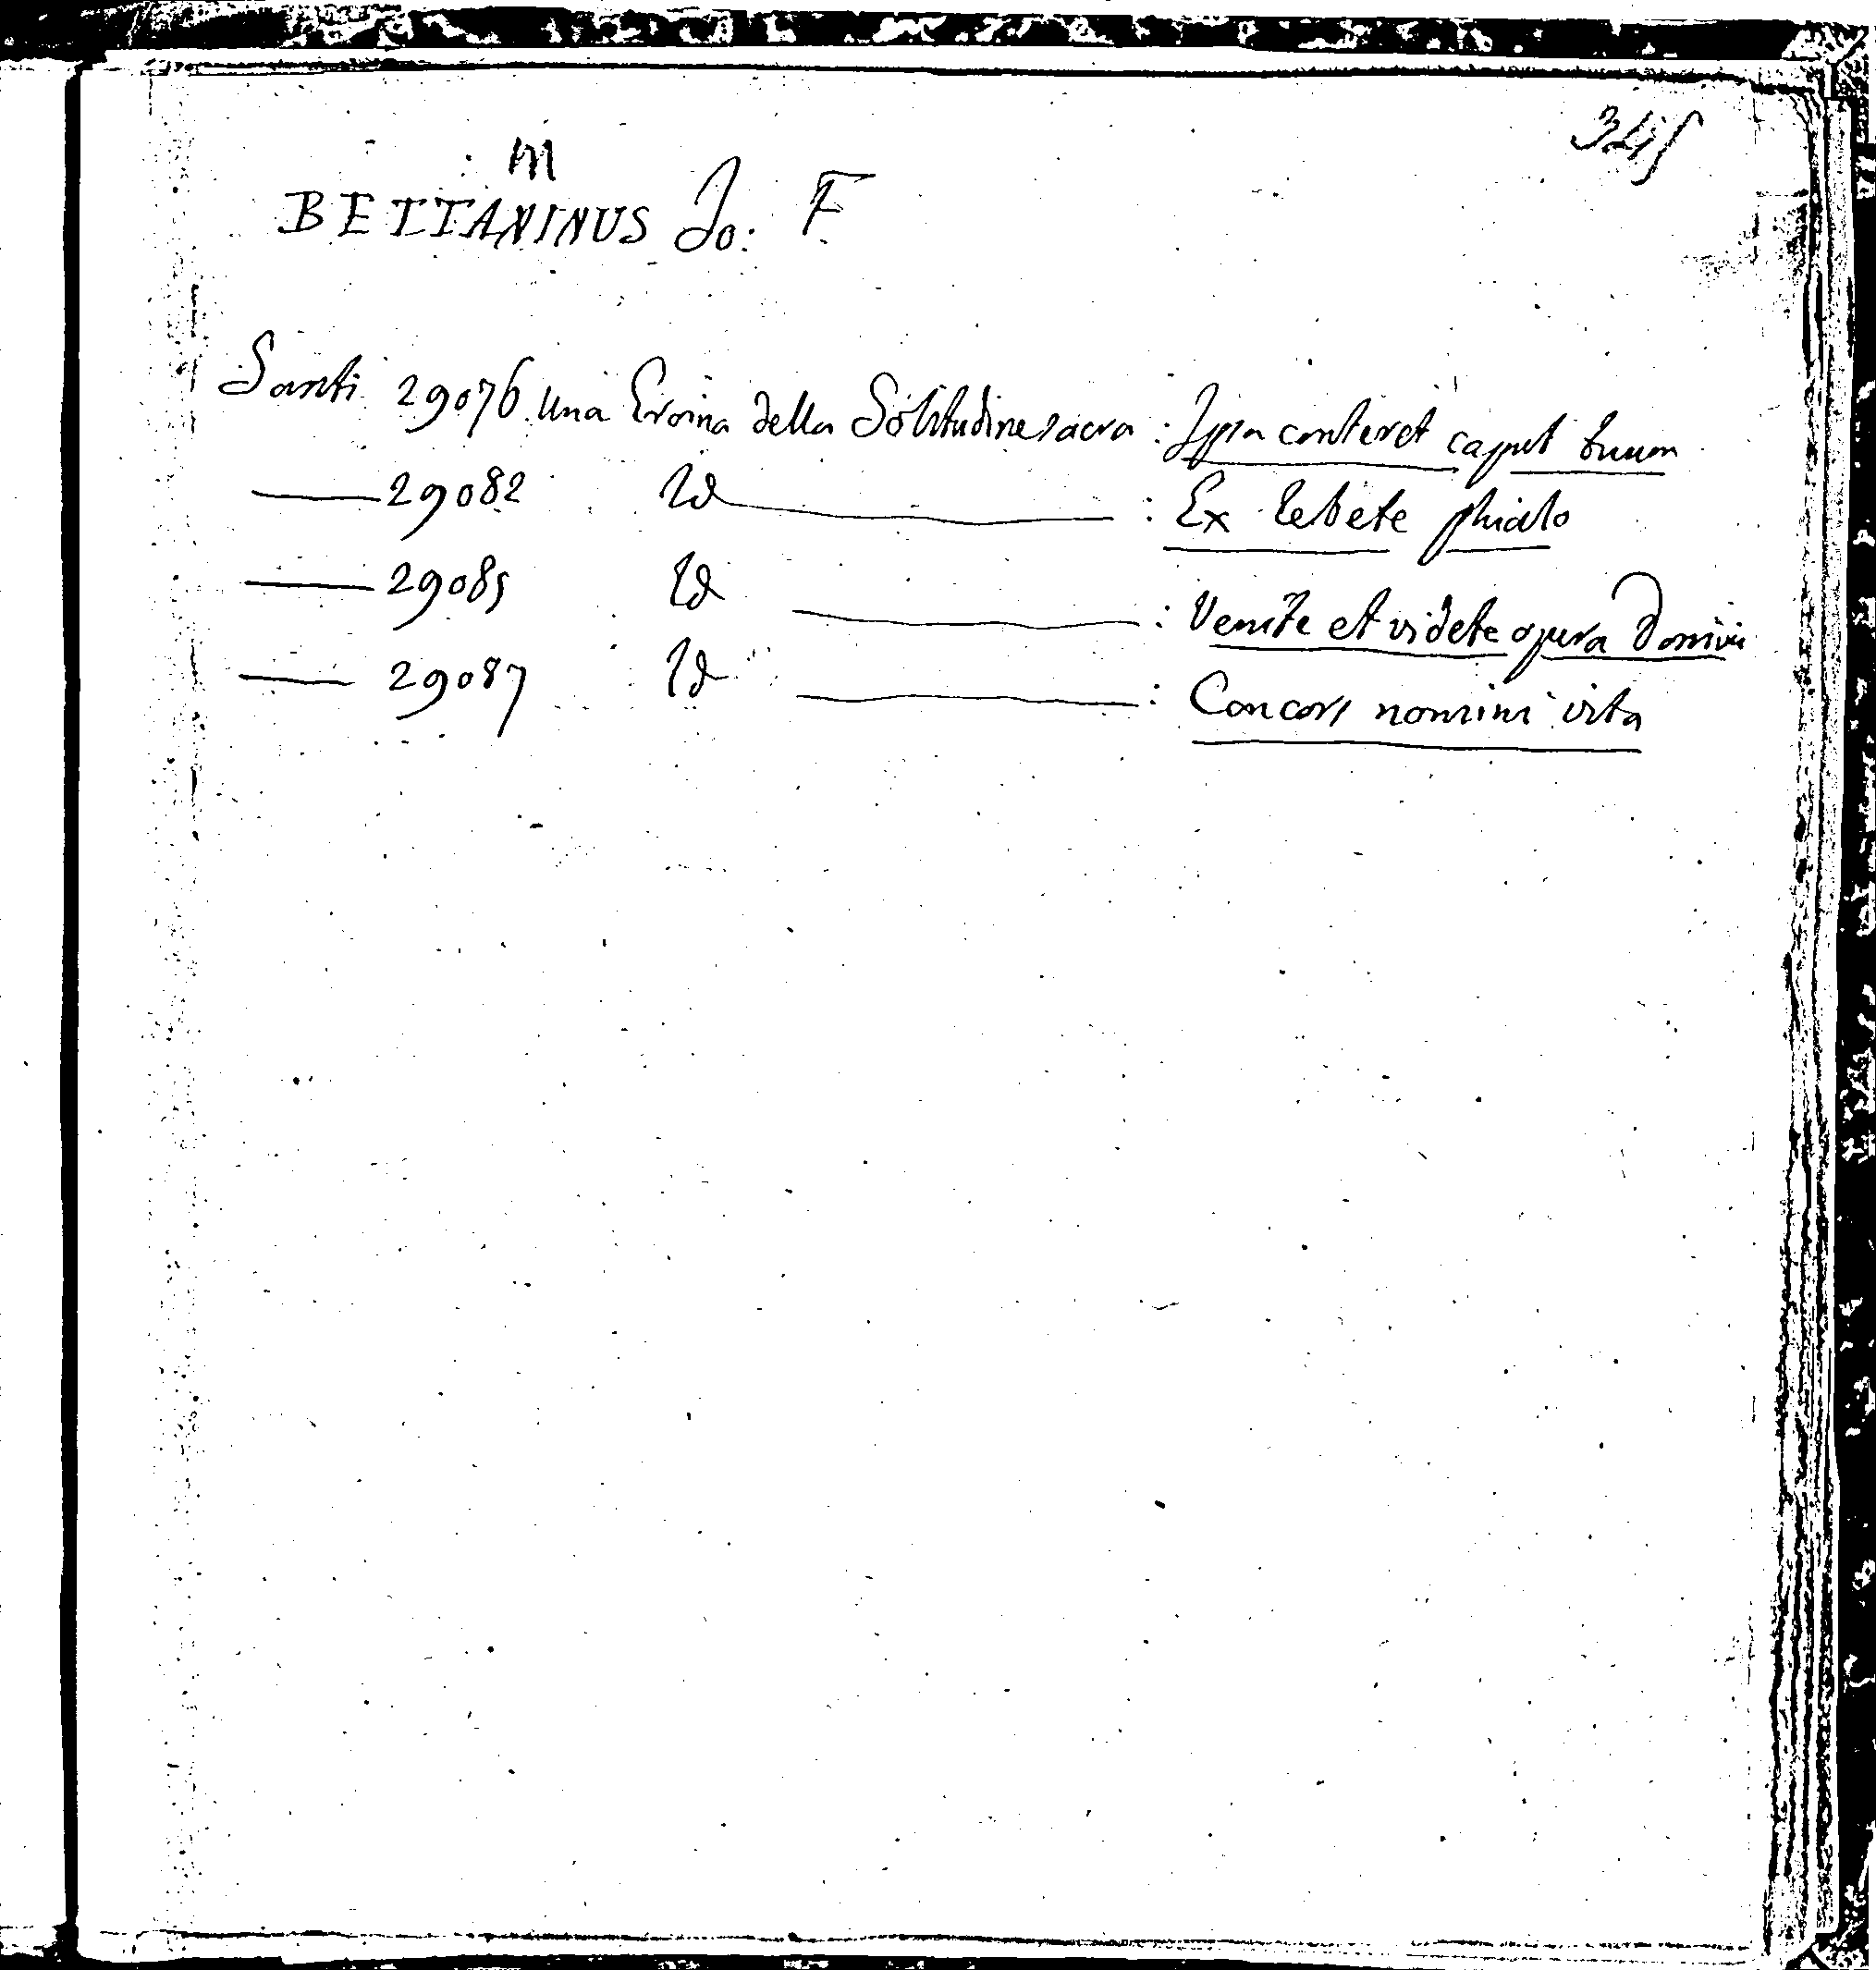 345
M
BETTANINUS Jo: F
Santi 29076 una Eroina della Solitudine sacra : Ipsa conteret caput tuum
29082 Id : Ex lebete phiala
29085 Id : Venite et videte opera Domini
29087 Id : Concors nomini vita